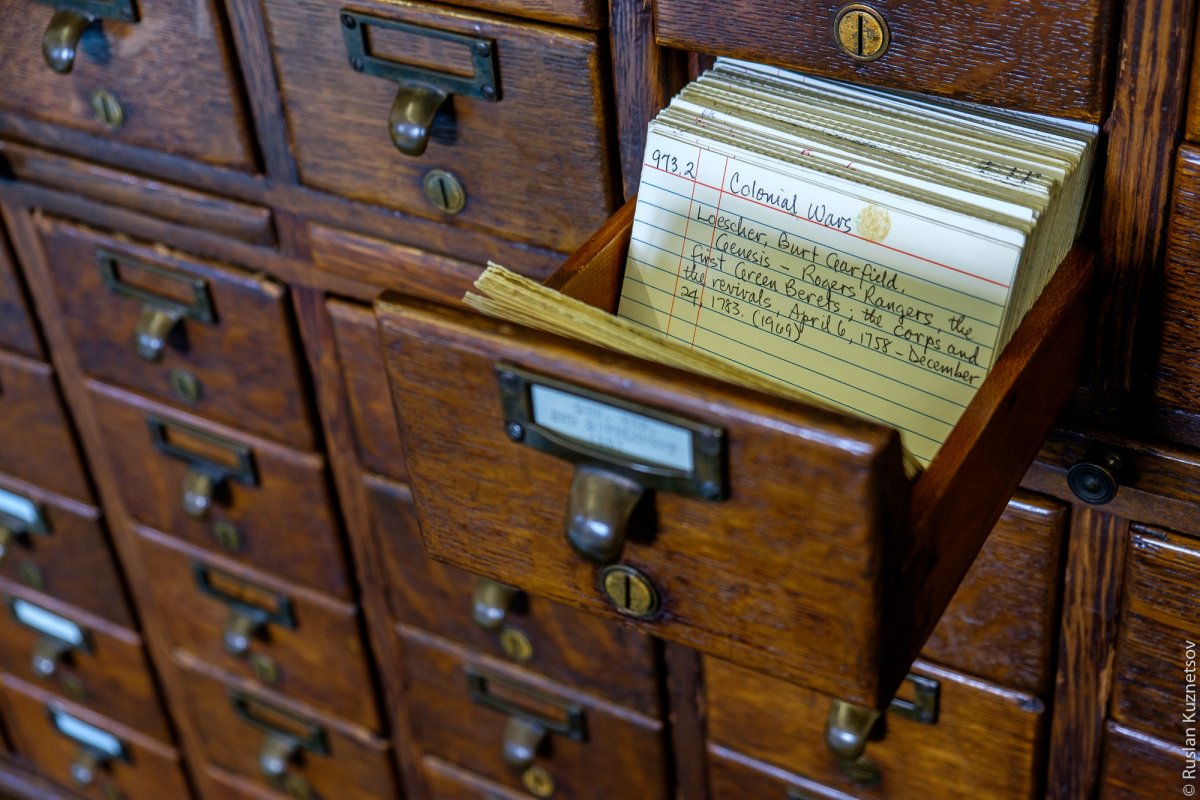 973.2 Colonial Wars
Loescher, Burt Garfield.
Genesis - Rogers Rangers, the
first Green Berets; the Corps and
the revivals, April 6, 1758 - December
24, 1783. (1969)
© Ruslan Kuznetsov